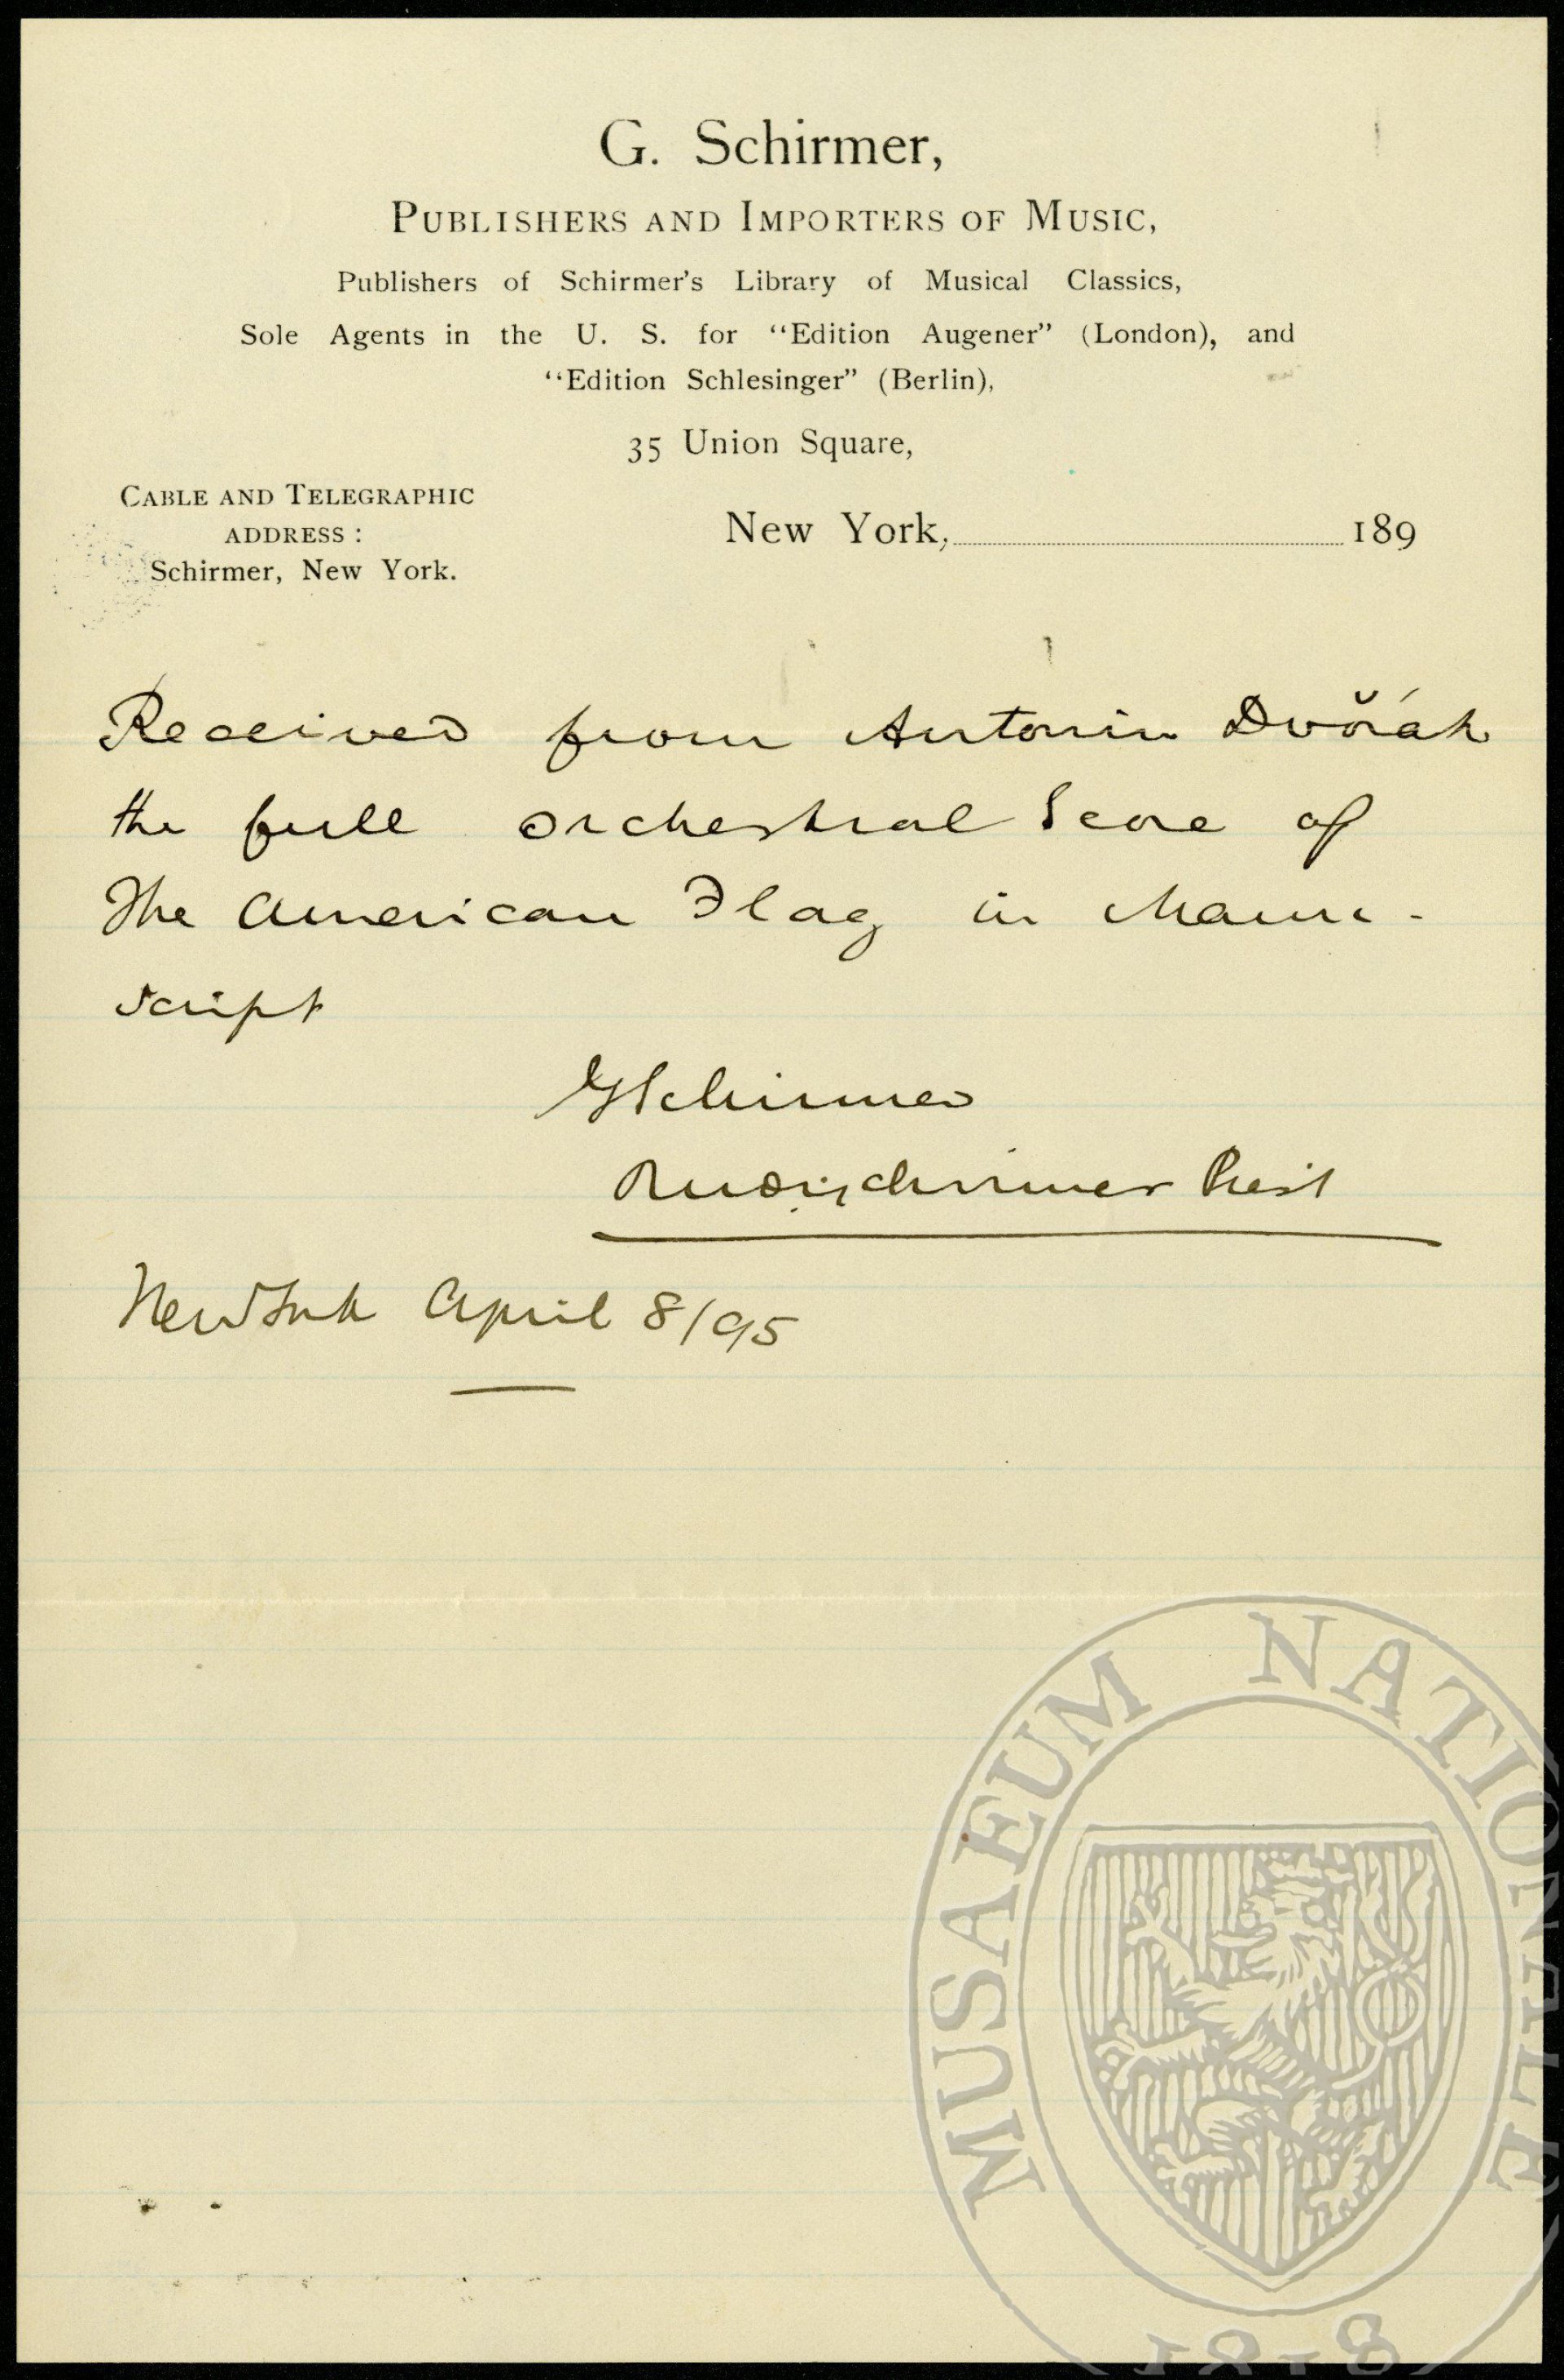 G. Schirmer,
PUBLISHERS AND IMPORTERS OF MUSIC,
Publishers of Schirmer's Library of Musical Classics,
Sole Agents in the U. S. for "Edition Augener" (London), and
"Edition Schlesinger" (Berlin),
35 Union Square,
CABLE AND TELEGRAPHIC
ADDRESS :
Schirmer, New York.
New York, 189
Received from Antonin Dvořák
the full orchestral Score of
The American Flag in Manu-
script
GSchirmer
Schirmer Prest
New York April 8/95
MUSAEUM NATIONALE
1818